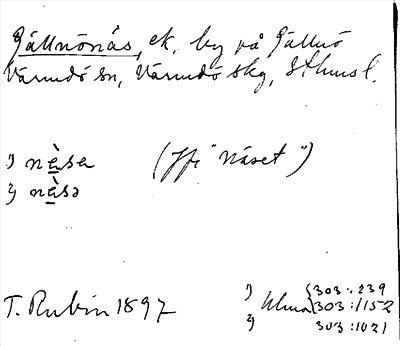 Gällnönäs, ek. by på Gällnö
Värmdö sn, Värmdö skg, Sthms l.
1) nèsa (Jfr "Näset")
2) nèsə
T. Rubin 1897
1) Ulma 303:239
303:1152
2) 303:1021